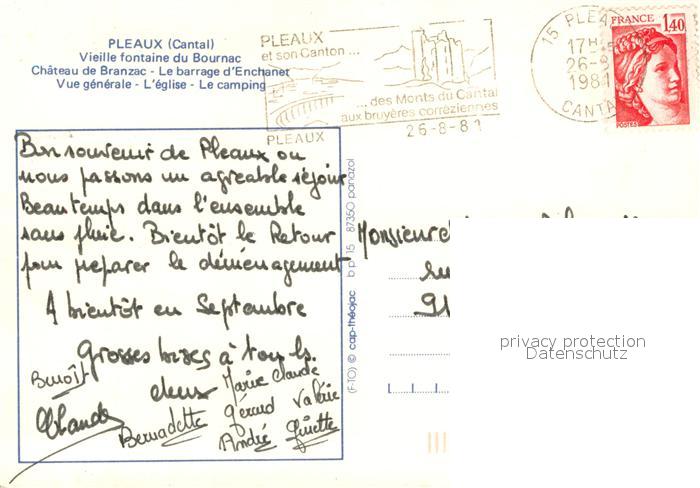 PLEAUX (Cantal)
Vieille fontaine du Bournac
Château de Branzac - Le barrage d'Enchanet
Vue générale - L'église - Le camping
PLEAUX
et son Canton ...
... des Monts du Cantal
aux bruyères corréziennes
PLEAUX
26-8-81
15 PLEAUX
17H
26-8
1981
CANTAL
FRANCE
1,40
POSTES
Bon souvenir de Pleaux ou
nous passons un agréable séjour
Beau temps dans l'ensemble
sans pluie. Bientôt le Retour
pour preparer le déménagement
A bientôt en Septembre
Grosses bises à tous ls.
deux
Benoît
Marie Claude
Claude
Bernadette
Gérard
Valérie
André
Ginette
(F-TO) © cap-théojac b p 15 87350 panazol
Monsieur
91
privacy protection
Datenschutz